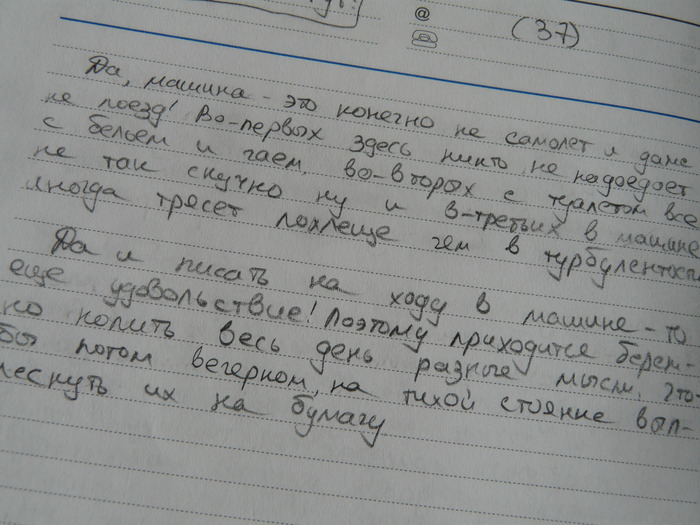 (37)
Да, машина - это конечно не самолет и даже
не поезд! Во-первых здесь никто не надоедает
с бельем и чаем, во-вторых с туалетом все
не так скучно ну и в-третьих в машине
иногда трясет похлеще чем в турбулентость
Да и писать на ходу в машине - то
еще удовольствие! Поэтому приходится береж-
но копить весь день разные мысли, что-
бы потом вечерком, на тихой стоянке вып-
леснуть их на бумагу